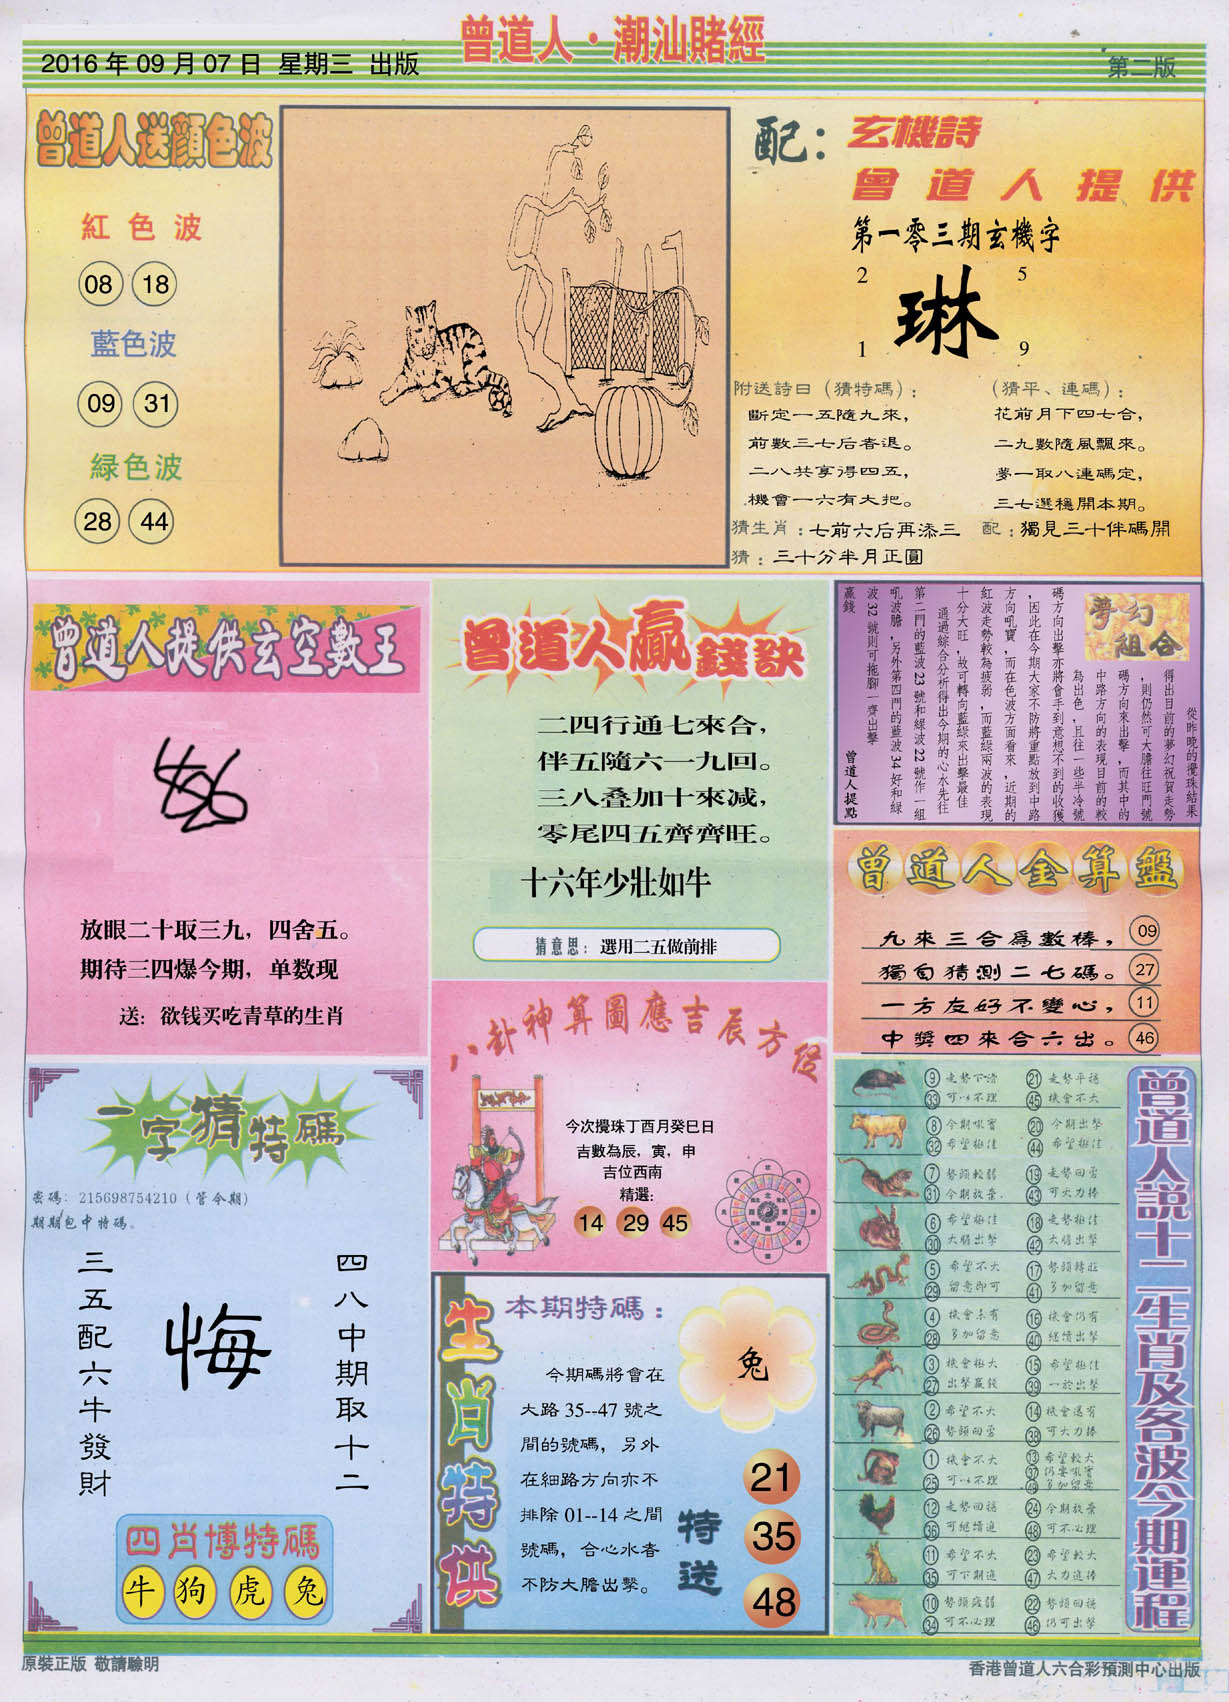 曾道人·潮汕賭經
2016 年 09 月 07 日 星期三 出版
第二版
曾道人送顏色波
紅色波
08 18
藍色波
09 31
綠色波
28 44
配：玄機詩
曾道人提供
第一零三期玄機字
2 5
琳
1 9
附送詩曰（猜特碼）：
斷定一五隨九來，
前數三七后者退。
二八共享得四五，
機會一六有大把。
（猜平、連碼）：
花前月下四七合，
二九數隨風飄來。
夢一取八連碼定，
三七選穩開本期。
猜生肖：七前六后再添三
配：獨見三十伴碼開
猜：三十分半月正圓
曾道人提供玄空數王
放眼二十取三九，四舍五。
期待三四爆今期，单数现
送：欲钱买吃青草的生肖
曾道人贏錢訣
二四行通七來合，
伴五隨六一九回。
三八叠加十來减，
零尾四五齊齊旺。
十六年少壯如牛
猜意思：選用二五做前排
夢幻組合
從昨晚的攪珠結果
得出目前的夢幻祝賀走勢
，則仍然可大膽往旺門號
碼方向來出擊，而其中的
中路方向的表現目前的較
為出色，且往一些半冷號
碼方向出擊亦將會手到意想不到的收獲
，因此在今期大家不防將重點放到中路
方向吼寶，而在色波方面看來，近期的
紅波走勢較為疲弱，而藍綠兩波的表現
十分大旺，故可轉向藍綠來出擊最佳
通過綜合分析得出今期的心水先往
第二門的藍波 23 號和綠波 22 號作一組
吼波膽，另外第四門的藍波 34 好和綠
波 32 號則可拖腳一齊出擊
贏錢
曾道人提點
曾道人金算盤
九來三合爲數棒， 09
獨自猜測二七碼。 27
一方友好不變心， 11
中獎四來合六出。 46
八卦神算圖應吉辰方位
今次攪珠丁酉月癸巳日
吉數為辰，寅，申
吉位西南
精選：
14 29 45
一字猜特碼
密碼：215698754210（管令期）
期期包中特碼。
三五配六牛發財
悔
四八中期取十二
四肖博特碼
牛 狗 虎 兔
生肖特供
本期特碼：
兔
今期碼將會在
大路 35--47 號之
間的號碼，另外
在細路方向亦不
排除 01--14 之間
號碼，合心水者
不防大膽出擊。
特送
21
35
48
曾道人說十二生肖及各波今期運程
9 走勢下滑 21 走勢平穩
33 可以不理 45 機會不大
8 今期吼實 20 今期出擊
32 希望極佳 44 希望極佳
7 勢頭較弱 19 走勢回勇
31 今期放棄 43 可大力捧
6 希望極佳 18 走勢極佳
30 大膽出擊 42 大膽出擊
5 希望不大 17 勢頭轉旺
29 留意即可 41 多加留意
4 機會未有 16 機會仍有
28 多加留意 40 繼續出擊
3 機會極大 15 希望極佳
27 出擊贏錢 39 一於出擊
2 希望不大 14 機會還有
26 勢頭回勇 38 可大力捧
1 機會不大 13 希望較大
37 仍要吼實
25 可以不理 49 多加留意
12 走勢回穩 24 今期放棄
36 可繼續追 48 可不必理
11 希望不大 23 希望較大
35 可下期追 47 大力追捧
10 勢頭疲弱 22 勢頭回穩
34 可不必理 46 仍可出擊
原裝正版 敬請驗明
香港曾道人六合彩預測中心出版